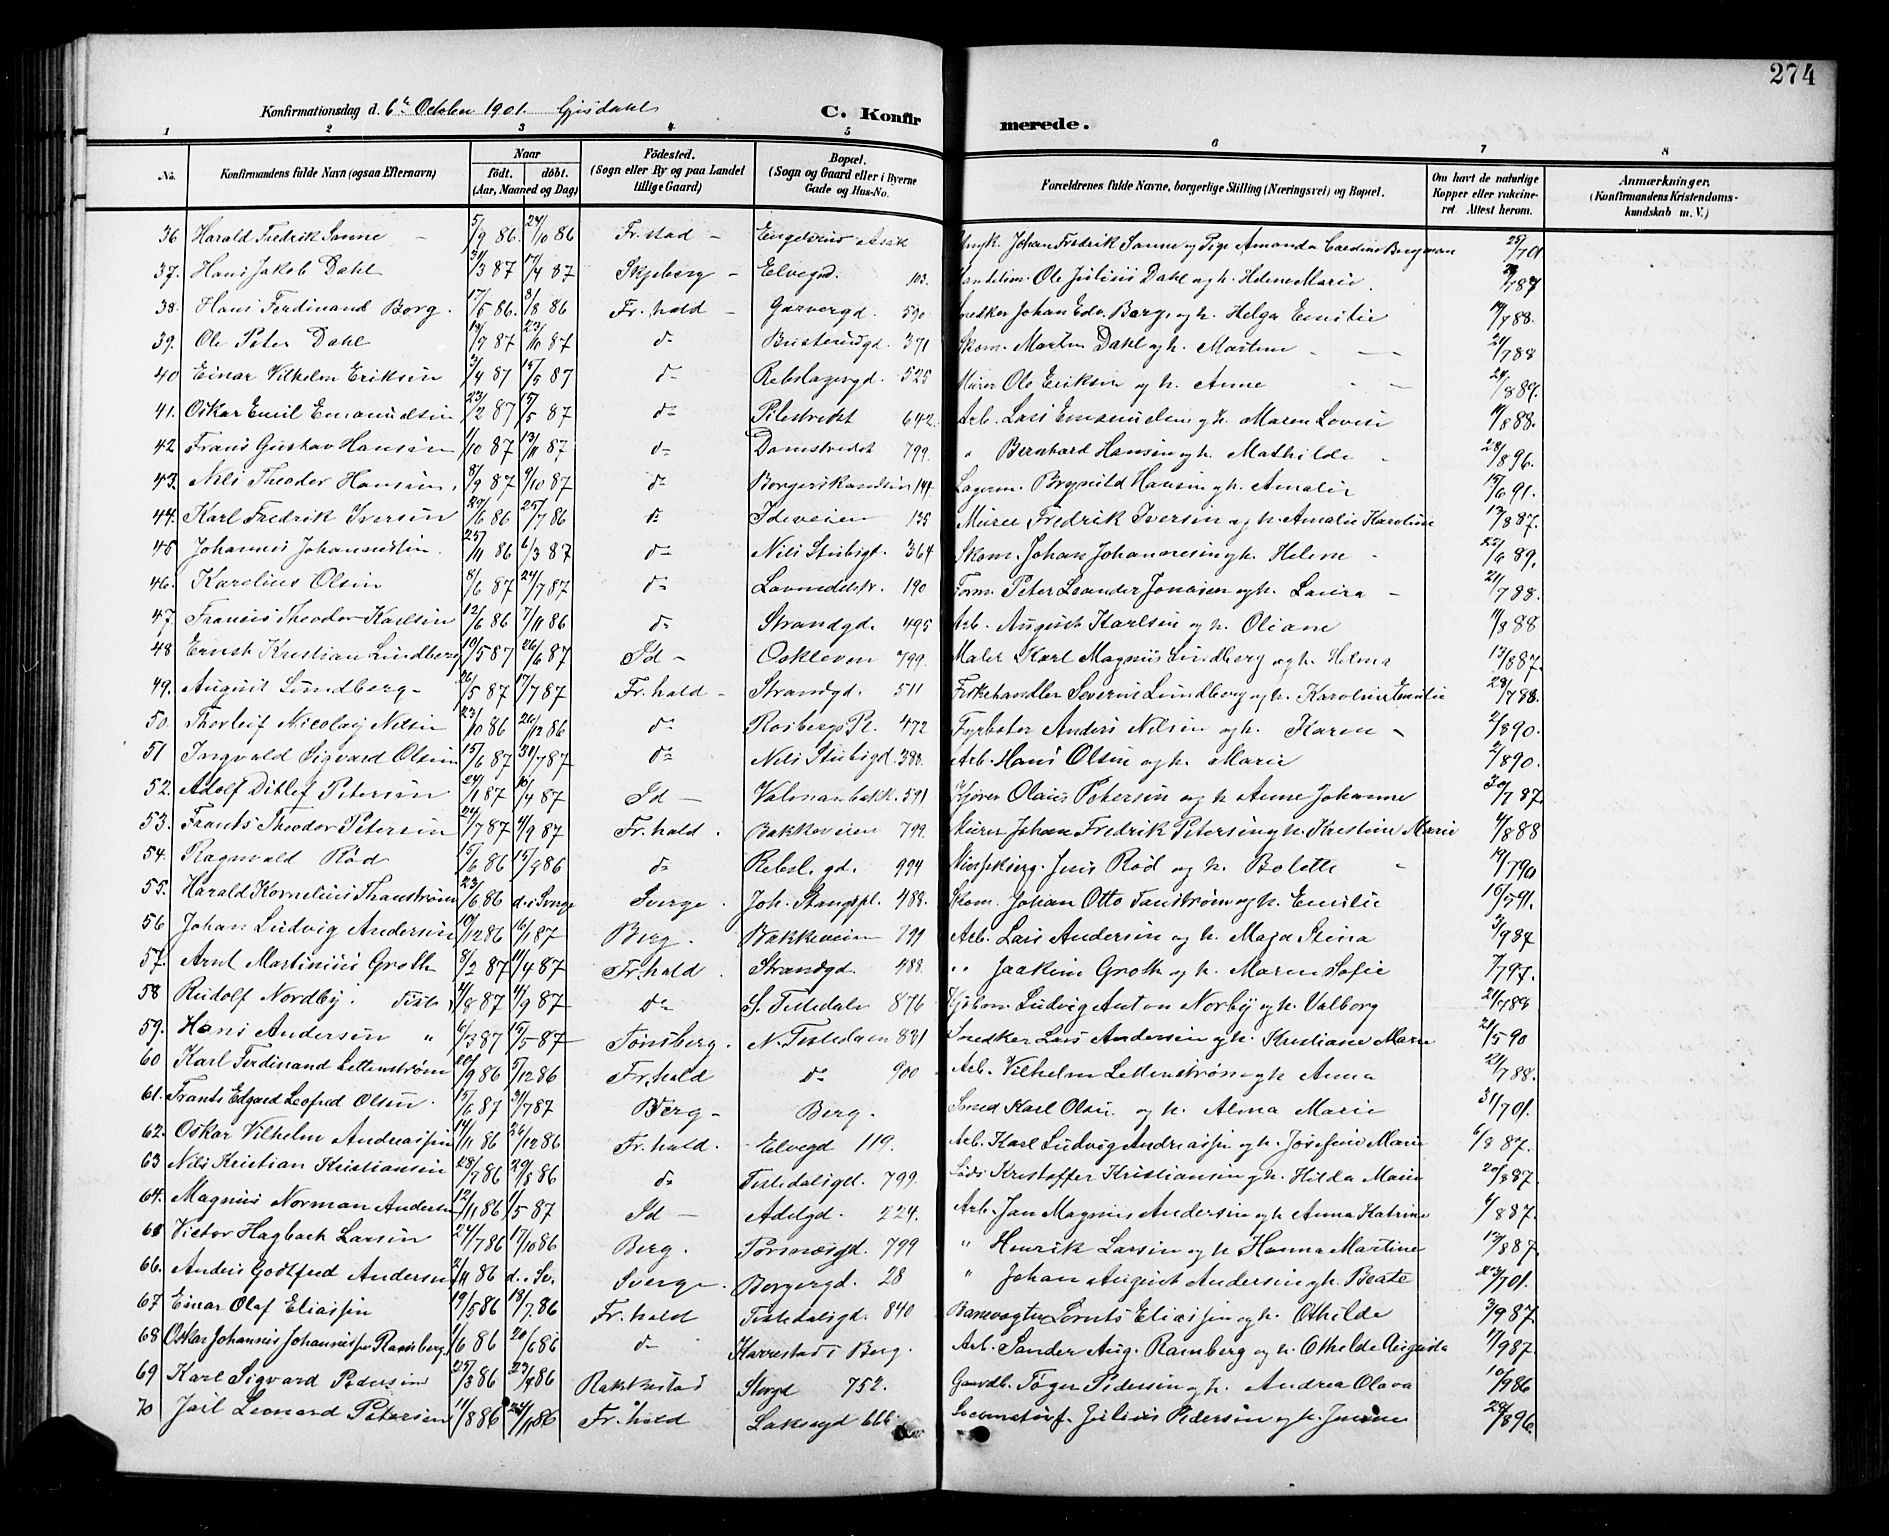 274
Konfirmationsdag d. 6te October 1901. Gjisdahl
C. Konfirmerede.
1 2 3 4 5 6 7 8
No. Konfirmandens fulde Navn (ogsaa Efternavn) Naar födt. döbt. (Aar, Maaned og Dag) Födested. (Sogn eller By og paa Landet tillige Gaard) Bopæl. (Sogn og Gaard eller i Byerne Gade og Hus-No. Forældrenes fulde Navne, borgerlige Stilling (Næringsvei) og Bopæl. Om havt de naturlige Kopper eller vakcineret. Attest herom. Anmærkninger. (Konfirmandens Kristendomskundskab m. V.)
36 Harald Fredrik Sanne 5/9 86. 24/10 86 Fr.stad Johan Fredrik Sanne og Pige Amanda Bergman 25/701
37. Hans Jakob Dahl 31/3 87 17/4 87 Skjeberg Elvegd. 103. Ole Julius Dahl og h. Helene Marie.
38. Hans Ferdinand Borg. 17/5 86. 8/8 86 Fr.hald Garvergd. 590 Snedker Johan Edv. Borg og h. Helga Emilie 19/788.
39. Ole Peter Dahl 19/7 87 23/10 87 do 371 Skom. Martin Dahl og h. Martine 24/788
40 Einar Vilhelm Eriksen 3/4 87 15/5 87 do Rebslagergd. 525 Murer Ole Eriksen og h. Anne
41. Oskar Emil Emanuelsen 23/2 87 15/5 87 do Pilestrædt 642 Arb. Lars Emanuelsen og h. Maren Lovise 19/888.
42 Frans Gustav Hansen 11/10 87 13/11 87 do Damstrædet 799. " Bernhard Hansen og h. Mathilde 28/896.
43. Nils Theodor Hansen. 8/9 87 9/10 87 do Lagerm. Hansen og h. Amalie 15/691.
44. Karl Fredrik Iversen 29/6 86 25/7 86 do Ideveien 135 Murer Fredrik Iversen og h. Amalie Karoline 13/887.
45 Johannes Johannesen. 25/11 86 6/3 87 do Nils Stubsgt. 364 Skom. Johan Johannesen og h. Helene 25/689.
46. Karelius Olsen 8/6 87 24/7 87 do 190 Form. Peter Leander Jonasen og h. Laura 21/788.
47. Francis Theodor Karlsen 12/6 86 7/11 86 do Strandgd. 495 Arb. August Karlsen og h. Oliane 11/888
48 Ernst Kristian Lundberg 19/5 87 26/6 87 Id Oskleven 799. Maler Karl Magnus Lundberg og h. Helma 13/887.
49. August Lundberg 26/5 87 17/7 87 Fr.hald Strandgd. 511 Fiskehandler Severin Lundberg og h. Karoline Emilie 28/788.
50. Thorleif Nicolay Nilsen 23/10 86 26/12 86 do Rosbergs Pl. 472 Fyrbøter Anders Nilsen og h. Karen 2/890.
51 Ingvald Sigvard Olsen 15/6 87 31/7 87 do Nils Stubsgd. 388. Arb. Hans Olsen og h. Marie 2/890.
52. Adolf Ditlef Petersen 24/1 87 10/4 87 Id 591 Kjører Olaus Petersen og h. Anne Johanne 30/787.
53. Frants Theodor Petersen 24/7 87 4/9 87 Fr.hald. Bakkeveien 799. Murer Johan Fredrik Petersen og h. Kristine Marie 4/888
54. Ragnvald Rød 15/6 86 15/9 86 do Rebsl. gd. 994 Jens Rød og h. Bolette 19/790
55. Harald Kornelius Thanstrøm 23/6 86 d. i Sverge Sverge Joh. Stangspl. 488. Skom. Johan Otto Tanstrøm og h. Emilie 10/591.
56 Johan Ludvig Andersen 10/12 86 16/1 87 Berg. Bakkeveien 799 Arb. Lars Andersen og h. Maja Stina 3/987
57. Arnt Martinius Groth 8/2 87 11/4 87 Fr.hald Strandgd. 488. " Joakim Groth og h. Maren Sofie 7/797.
58 Rudolf Nordby. Tist. 4/8 87 4/9 87 do S. Tistedalen 876 Ludvig Anton Norby og h. Valborg 21/788
59. Hans Andersen " 6/3 87 15/5 87 Tønsberg. N. Tistedalen 831 Snedker Lars Andersen og h. Kristiane Marie 21/590
60 Karl Ferdinand Lettenstrøm 20/9 86 5/12 86 Fr.hald do 900 Arb. Vilhelm Lettenstrøm og h. Anna 21/788.
61. Frants Edgard Leofred Olsen. 15/6 87 31/7 87 Berg Berg. Smed Karl Olsen og h. Alma Marie 31/701.
62. Oskar Vilhelm Andreassen 14/11 86 26/12 86 Fr.hald. Elvegd 119. Arb. Karl Ludvig Andreassen og h. Josefine Marie 6/887.
63 Nils Kristian Kristiansen 28/7 86 29/8 86 do Tistedalsgd. 799. Kristoffer Kristiansen og h. Hilda Marie 20/887.
64. Magnus Norman Andersen 12/11 86 1/5 87 Id Adelgd. 224. Arb. Jan Magnus Andersen og h. Anna Katrine 4/887.
65 Victor Hagbart Larsen 24/7 86 17/10 86 Berg. 799 " Henrik Larsen og h. Hanna Martine 13/887.
66. Anders Godtfred Andersen 2/11 86 d. i Sv. Sverge. Borgergd. 28 " Johan August Andersen og h. Beate
67 Einar Olaf Eliassen 19/5 86 18/7 86 Fr.hald Tistedalsgd. 840 Banevogter Lornts Eliassen og h. Othilde 3/987.
68 Oskar Johannes Johannessen Ramberg. 1/6 86 20/6 86 do Karrestad i Berg. Arb. Sander Aug. Ramberg og h. Othilde Augusta 11/987.
69 Karl Sigvard Pedersen 25/3 86 23/9 86 Rakkestad Storgd 752. Gaardb. Tøger Pedersen og h. Andrea Olava 10/986
70 Jarl Leonard Petersen 11/8 86 Fr.hald 666. Julius Pedersen og h. 28/896.